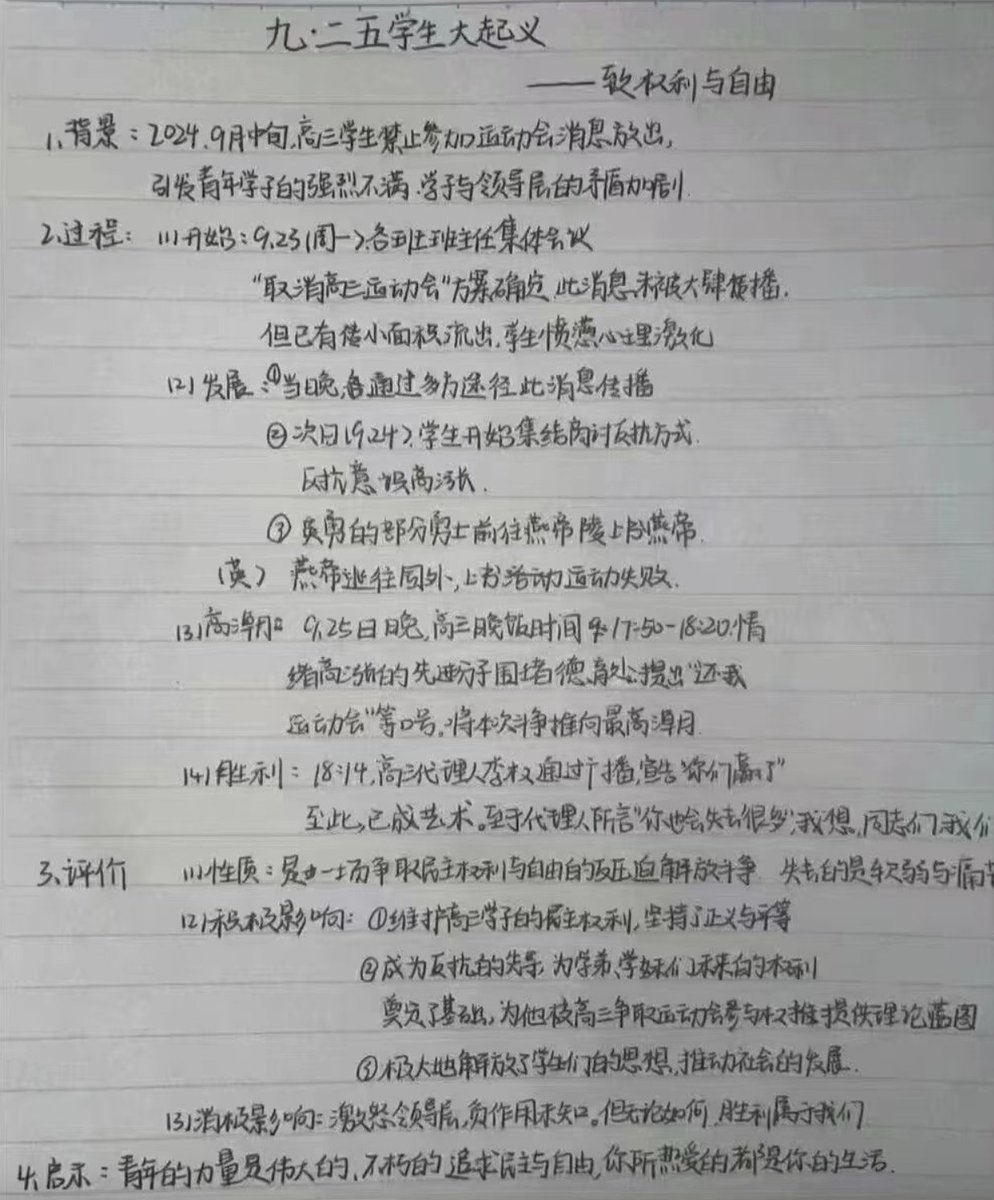 九·二五学生大起义
——致权利与自由
1、背景：2024.9月中旬,高三学生禁止参加运动会消息放出,
引发青年学子的强烈不满.学子与领导层的矛盾加剧.
2、过程：(1)开始：9.23(周一),各班班主任集体会议
"取消高三运动会"方案确定,此消息未被大肆传播.
但已有借小面积流出,学生愤懑心理激化
(2)发展：①当晚,各通过多方途径此消息传播
②次日(9.24),学生开始集结商讨反抗方式.
反抗意识高涨.
③英勇的部分勇士前往燕帝陵上书燕帝.
(英) 燕帝逃往国外,上书活动运动失败.
(3)高潮：9.25日晚,高三晚饭时间17:50-18:20.情
绪高涨的先进分子围堵德育处,提出"还我
运动会"等口号,将本次斗争推向最高潮.
(4)胜利：18:14,高三代理人李权通过广播,宣告"你们赢了"
至此,已成艺术。至于代理人所言"你也会失去很多",我想,同志们,我们
3、评价 (1)性质：是一场争取民主权利与自由的反压迫解放斗争. 失去的是软弱与痛苦
(2)积极影响：①维护高三学子的民主权利,坚持了正义与平等
②成为反抗的先导,为学弟、学妹们未来的权利
奠定了基础,为他校高三争取运动会参与权推提供理论蓝图
③极大地解放了学生们的思想,推动社会的发展.
(3)消极影响：激怒领导层,负作用未知。但无论如何,胜利属于我们
4、启示：青年的力量是伟大的,不朽的.追求民主与自由,你所热爱的都是你的生活.